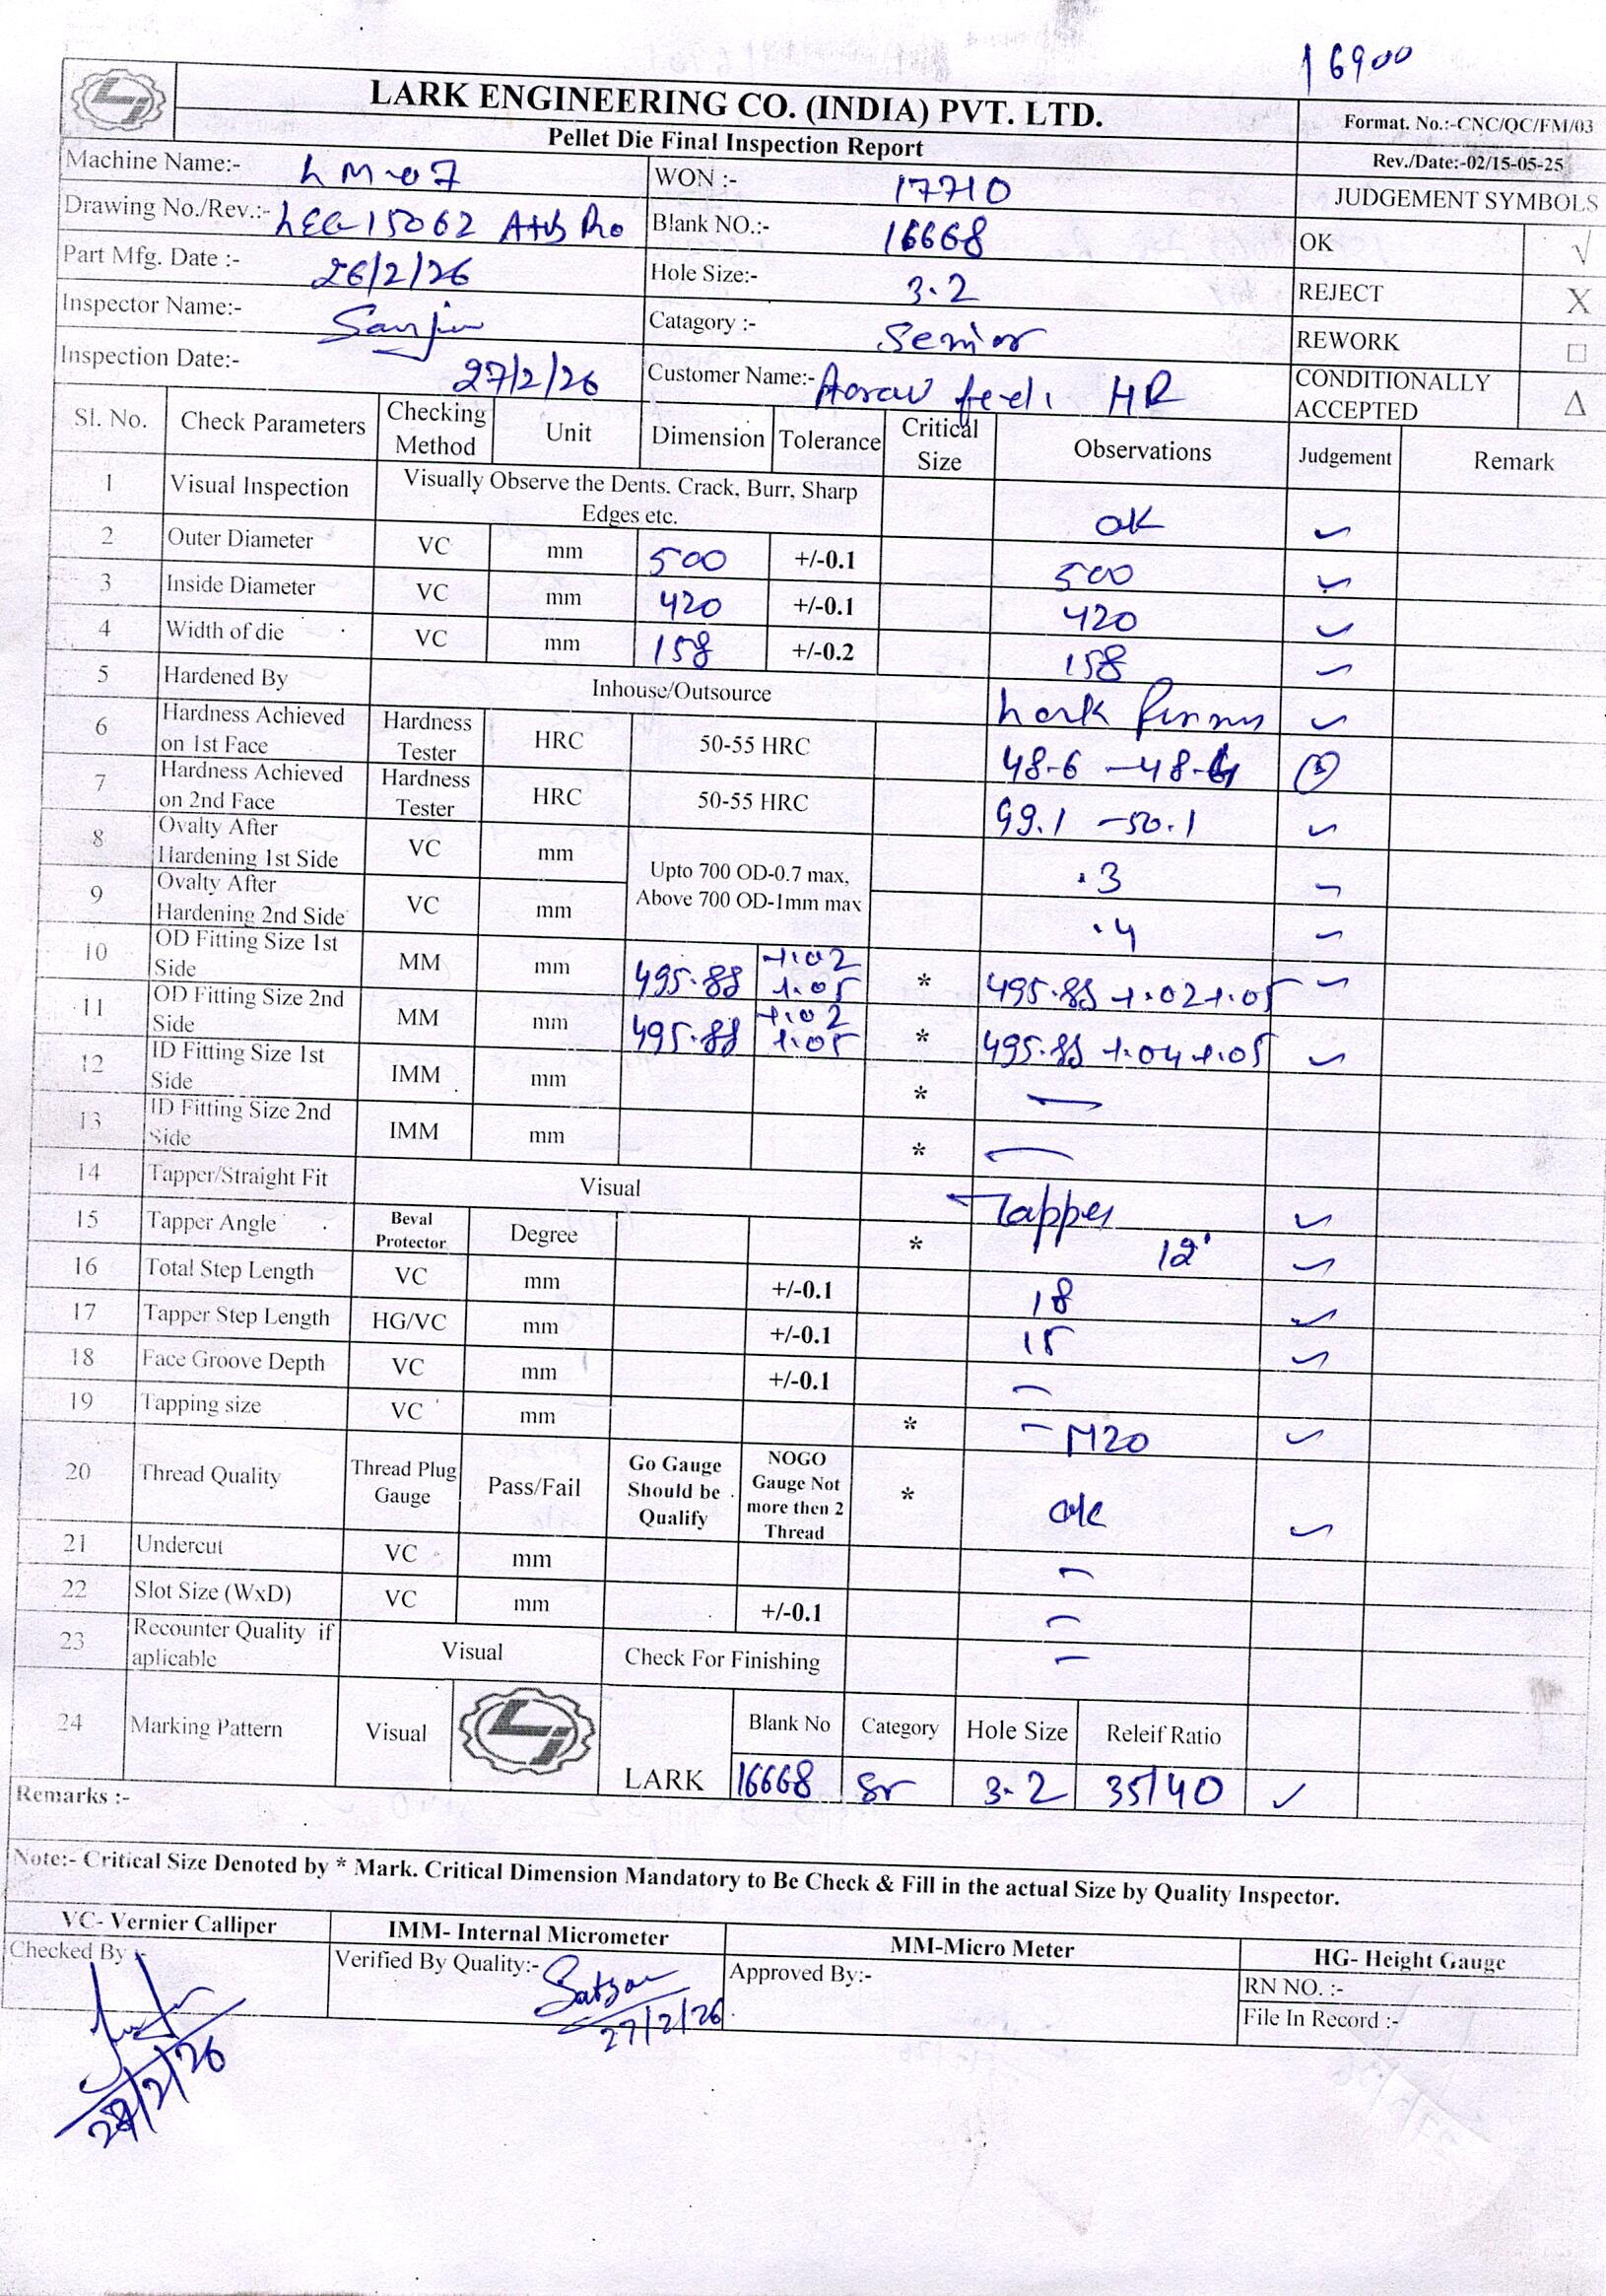 16900
LARK ENGINEERING CO. (INDIA) PVT. LTD.
Format. No.:-CNC/QC/FM/03
Pellet Die Final Inspection Report
Rev./Date:-02/15-05-25
Machine Name:- LM-07 WON :- 17710 JUDGEMENT SYMBOLS
Drawing No./Rev.:- LEC-15062 Blank NO.:- 16668 OK √
Part Mfg. Date :- 26/2/26 Hole Size:- 3.2 REJECT X
Inspector Name:- Catagory :- Senior REWORK □
Inspection Date:- 27/2/26 Customer Name:- HR CONDITIONALLY ACCEPTED Δ
Sl. No. Check Parameters Checking Method Unit Dimension Tolerance Critical Size Observations Judgement Remark
1 Visual Inspection Visually Observe the Dents. Crack, Burr, Sharp Edges etc. ok ✓
2 Outer Diameter VC mm 500 +/-0.1 500 ✓
3 Inside Diameter VC mm 420 +/-0.1 420 ✓
4 Width of die VC mm 158 +/-0.2 158 ✓
5 Hardened By Inhouse/Outsource Lark ✓
6 Hardness Achieved on 1st Face Hardness Tester HRC 50-55 HRC 48-6 -
7 Hardness Achieved on 2nd Face Hardness Tester HRC 50-55 HRC 49.1 -50.1 ✓
8 Ovalty After Hardening 1st Side VC mm Upto 700 OD-0.7 max, Above 700 OD-1mm max .3 ✓
9 Ovalty After Hardening 2nd Side VC mm .4 ✓
10 OD Fitting Size 1st Side MM mm 495.88 +.02 +.05 * 495.88 +.02 +.05 ✓
11 OD Fitting Size 2nd Side MM mm 495.88 +.02 +.05 * 495.88 +.04 +.05 ✓
12 ID Fitting Size 1st Side IMM mm * —
13 ID Fitting Size 2nd Side IMM mm * —
14 Tapper/Straight Fit Visual Tapper ✓
15 Tapper Angle Beval Protector Degree * 12° ✓
16 Total Step Length VC mm +/-0.1 18 ✓
17 Tapper Step Length HG/VC mm +/-0.1 15 ✓
18 Face Groove Depth VC mm +/-0.1 —
19 Tapping size VC mm * - M20 ✓
20 Thread Quality Thread Plug Gauge Pass/Fail Go Gauge Should be Qualify NOGO Gauge Not more then 2 Thread * ok ✓
21 Undercut VC mm —
22 Slot Size (WxD) VC mm +/-0.1 —
23 Recounter Quality if aplicable Visual Check For Finishing —
24 Marking Pattern Visual LARK Blank No Category Hole Size Releif Ratio
16668 Sr 3.2 35/40 ✓
Remarks :-
Note:- Critical Size Denoted by * Mark. Critical Dimension Mandatory to Be Check & Fill in the actual Size by Quality Inspector.
VC- Vernier Calliper IMM- Internal Micrometer MM-Micro Meter HG- Height Gauge
Checked By :- Verified By Quality:- Approved By:- RN NO. :-
File In Record :-
27/2/26